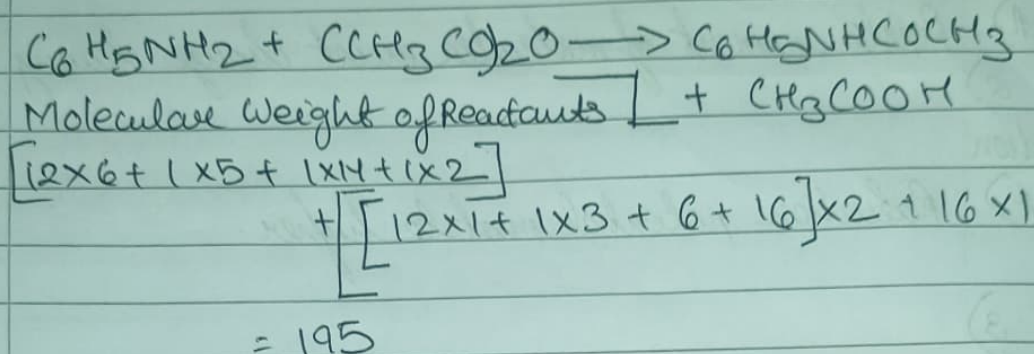 C6H5NH2 + (CH3CO)2O → C6H5NHCOCH3
Moleculare Weight of Reactants] + CH3COOH
[12×6+1×5+1×14+1×2]
+[[12×1+1×3+6+16]×2+16×1
= 195